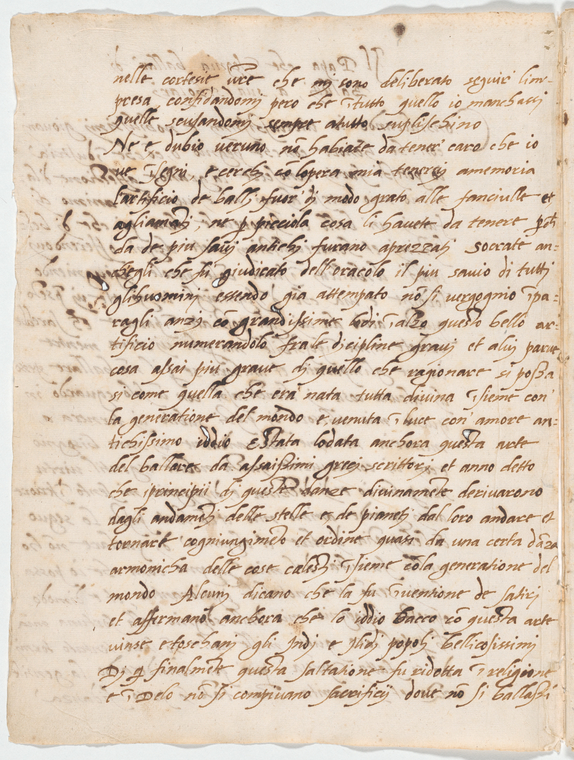 nelle cortesie vre che mi sono deliberato seguir lim-
presa confidandomi pero che i tutto quello io manchassi
quelle scusandomi sempre a tutto suplischino
Ne e dubio veruno nō habiate da tener caro che io
ve isegni e cerchi cō lopera mia tenervi a memoria
lartificio de balli fuor di modo grato alle fanciulle et
agliamāti ne p picciola cosa li havete da tenere poi
da de piu savij antichi furano aprezzati Socrate an-
chegli che fu giudicato dell oracolo il piu savio di tutti
glihuomini essendo gia attempato nō si vergogniò īpa-
ragli anzi cō grandissime lodi alzò questo bello ar-
tificio numerandolo fra le dicipline gravi et a lui parve
cosa assai piu grave di quello che ragionare si possa
si come quella che era nata tutta divina īsieme con
la generatione del mondo e venuta ī luce con amore an-
tichissimo iddio E stata lodata anchora questa arte
del ballare da assaissimi greci scrittori et anno detto
che i principii di queste danze divinamēte derivarono
dagli andamēti delle stelle e de pianeti dal loro andare et
tornare cogniungimēto et ordine quasi da una certa dāza
armonicha delle cose celesti īsieme cōla generatione del
mondo Alcuni dicano che la fu inventione de satiri
et affermano anchora che lo iddio bacco cō questa arte
vinse e toschani gli Indi e lidi popoli bellicosissimi
Di q finalmēte questa saltatione fu ridotta ī religione
e ī Delo nō si compivano sacrificij dove nō si ballassi